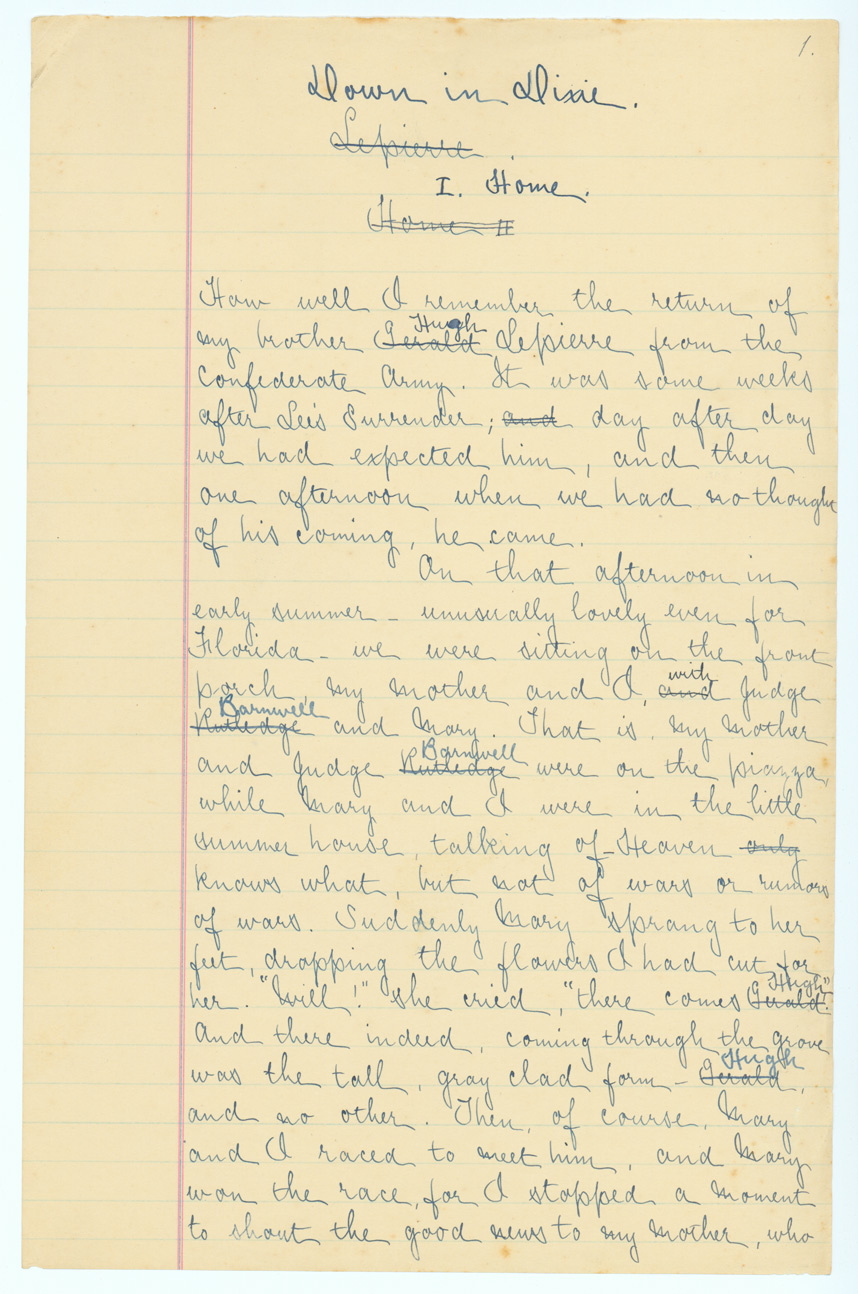 1.
Down in Dixie.
Lepierre.
I. Home.
Home II
How well I remember the return of
Hugh
my brother Gerald Lepierre from the
Confederate Army. It was some weeks
after Lee's Surrender; and day after day
we had expected him, and then
one afternoon when we had no thought
of his coming, he came.
On that afternoon in
early summer - unusually lovely even for
Florida - we were sitting on the front
with
porch, my mother and I, and Judge
Barnwell
Rutledge and Mary. That is, my mother
Barnwell
and Judge Rutledge were on the piazza,
while Mary and I were in the little
summer house, talking of - Heaven only
knows what, but not of wars or rumors
of wars. Suddenly Mary sprang to her
feet, dropping the flowers I had cut for
Hugh"
her. "Will!" she cried, "there comes Gerald."
And there indeed, coming through the grove
Hugh
was the tall, gray clad form - Gerald,
and no other. Then, of course, Mary
and I raced to meet him, and Mary
won the race, for I stopped a moment
to shout the good news to my mother, who